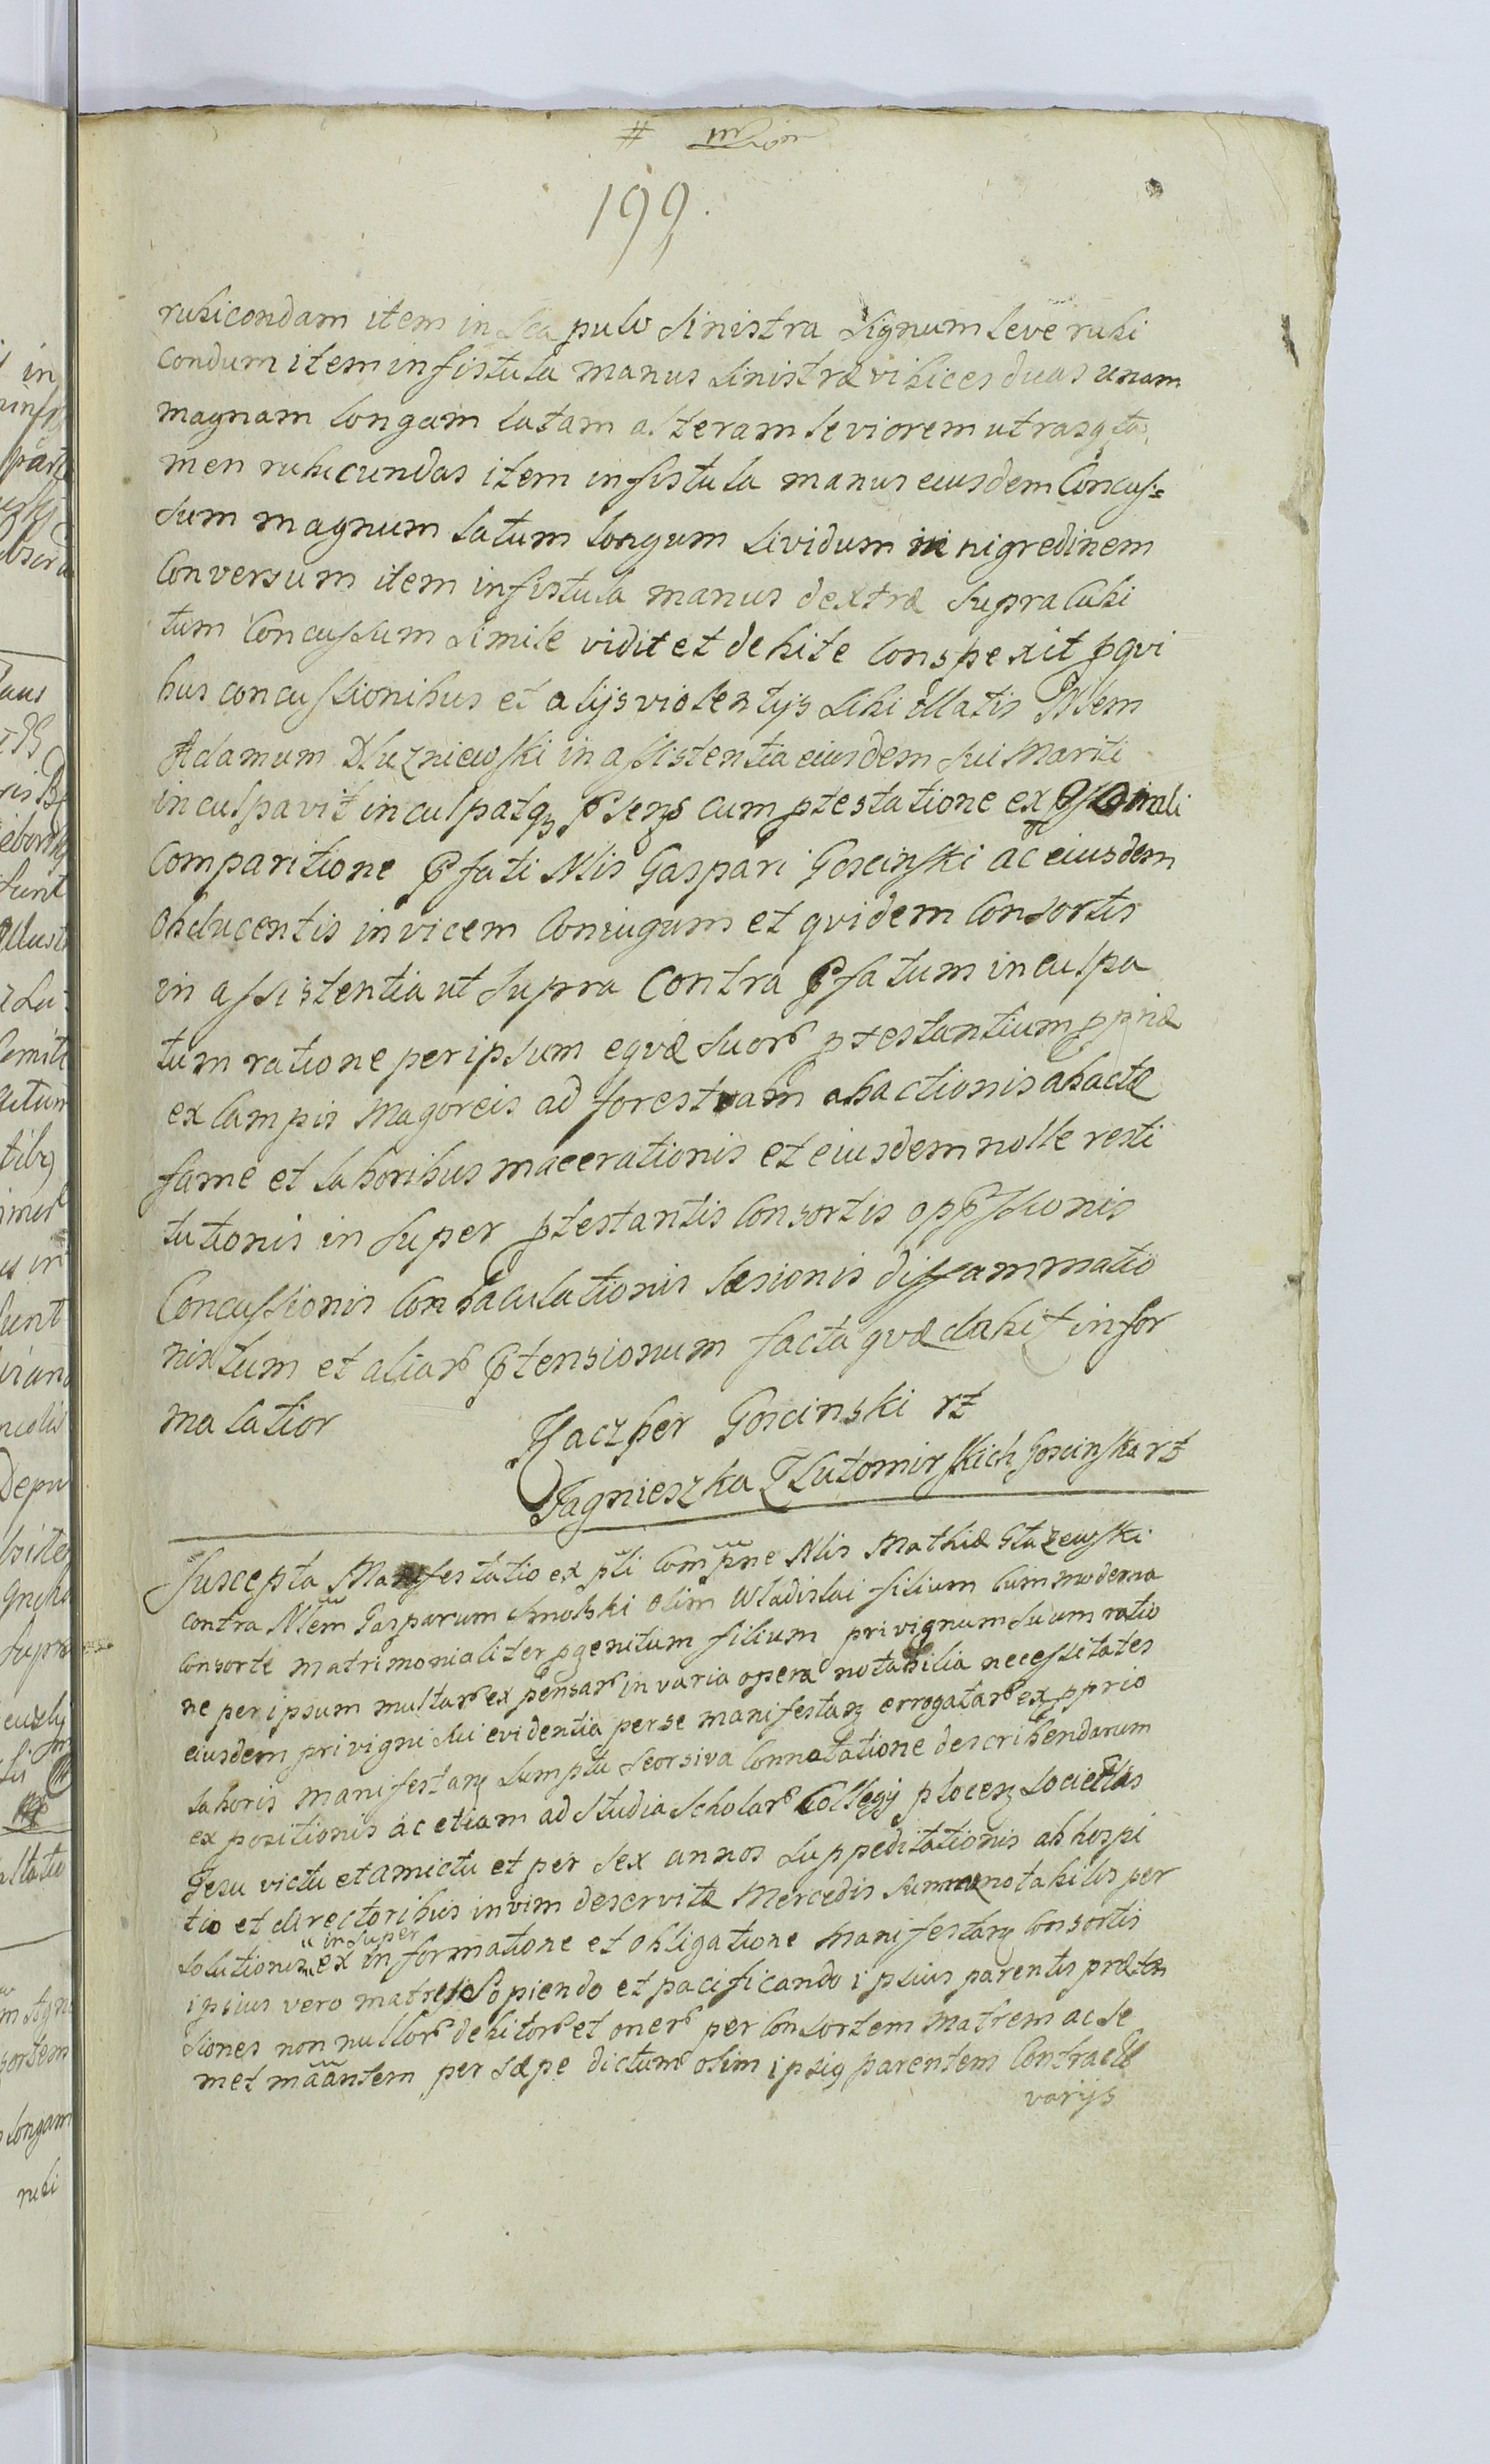 199.
rubicondam item in scapulo sinistra signum leve rubi
condum item in fistula manus sinistræ vibices duas unam
magnam longam latam alteram leviorem utrasq ta
men rubicundas item in fistula manus eiusdem Concus=
sum magnum latum longum lividum in nigredinem
Conversum item in fistula manus dextræ supra Cubi
tum Concussum simile vidit et debite Conspexit p qvi
bus concussionibus et alijs violentijs sibi illatis Nlem
Adamum Dłuzniewski in assistentia eiusdem sui Mariti
inculpavit inculpatq psens cum ptestatione ex
Comparitione pfati Nlis Gaspari Goscinski ac eiusdem
Obducentis invicem Coniugum et qvidem Consortis
in assistentia ut supra Contra pfatum inculpa
tum ratione per ipsum eqvæ suor ptestantium ppriæ
ex Campis Magoreis ad forestvam abactionis abactæ
fame et laboribus macerationis et eiusdem nolle resti
tutionis in super ptestantis Consortis oppssionis
Concussionis Conbaculationis læsionis diffammatio
nis tum et aliar ptensionum facta qvæ dabit infor
ma latior
Kaczper Goscinski rz
Jagnieszka Z Lutomirskich Goscinska rz
Suscepta Manifestatio ex pli Compne Nlis Mathiæ Stazewski
contra Nlem Gasparum Smolski olim Wladislai filium Cum moderna
Consorte matrimonialiter pgenitum filium privignum suum ratio
ne per ipsum multar expensar in varia opera notabilia necessitates
eiusdem privigni sui evidentia per se manifestanz errogatar ex pprio
laboris manifestanz sumptu seorsiva Connotatione describendarum
expositionis ac etiam ad studia Scholar Collegij plocen Societatis
Jesu victu et amictu et per sex annos suppeditationis ab hospi
tio et directoribus in vim deservitæ Mercedis summæ notabilis per
solutionis insuper ex informatione et obligatione manifestanz Consortis
ipsius vero matris sopiendo et pacificando ipsius parentis præten
siones non nullor debitor et oner per Consortem Matrem ac se
met maantem per sæpe dictum olim ipsig parentem Contract
varijs